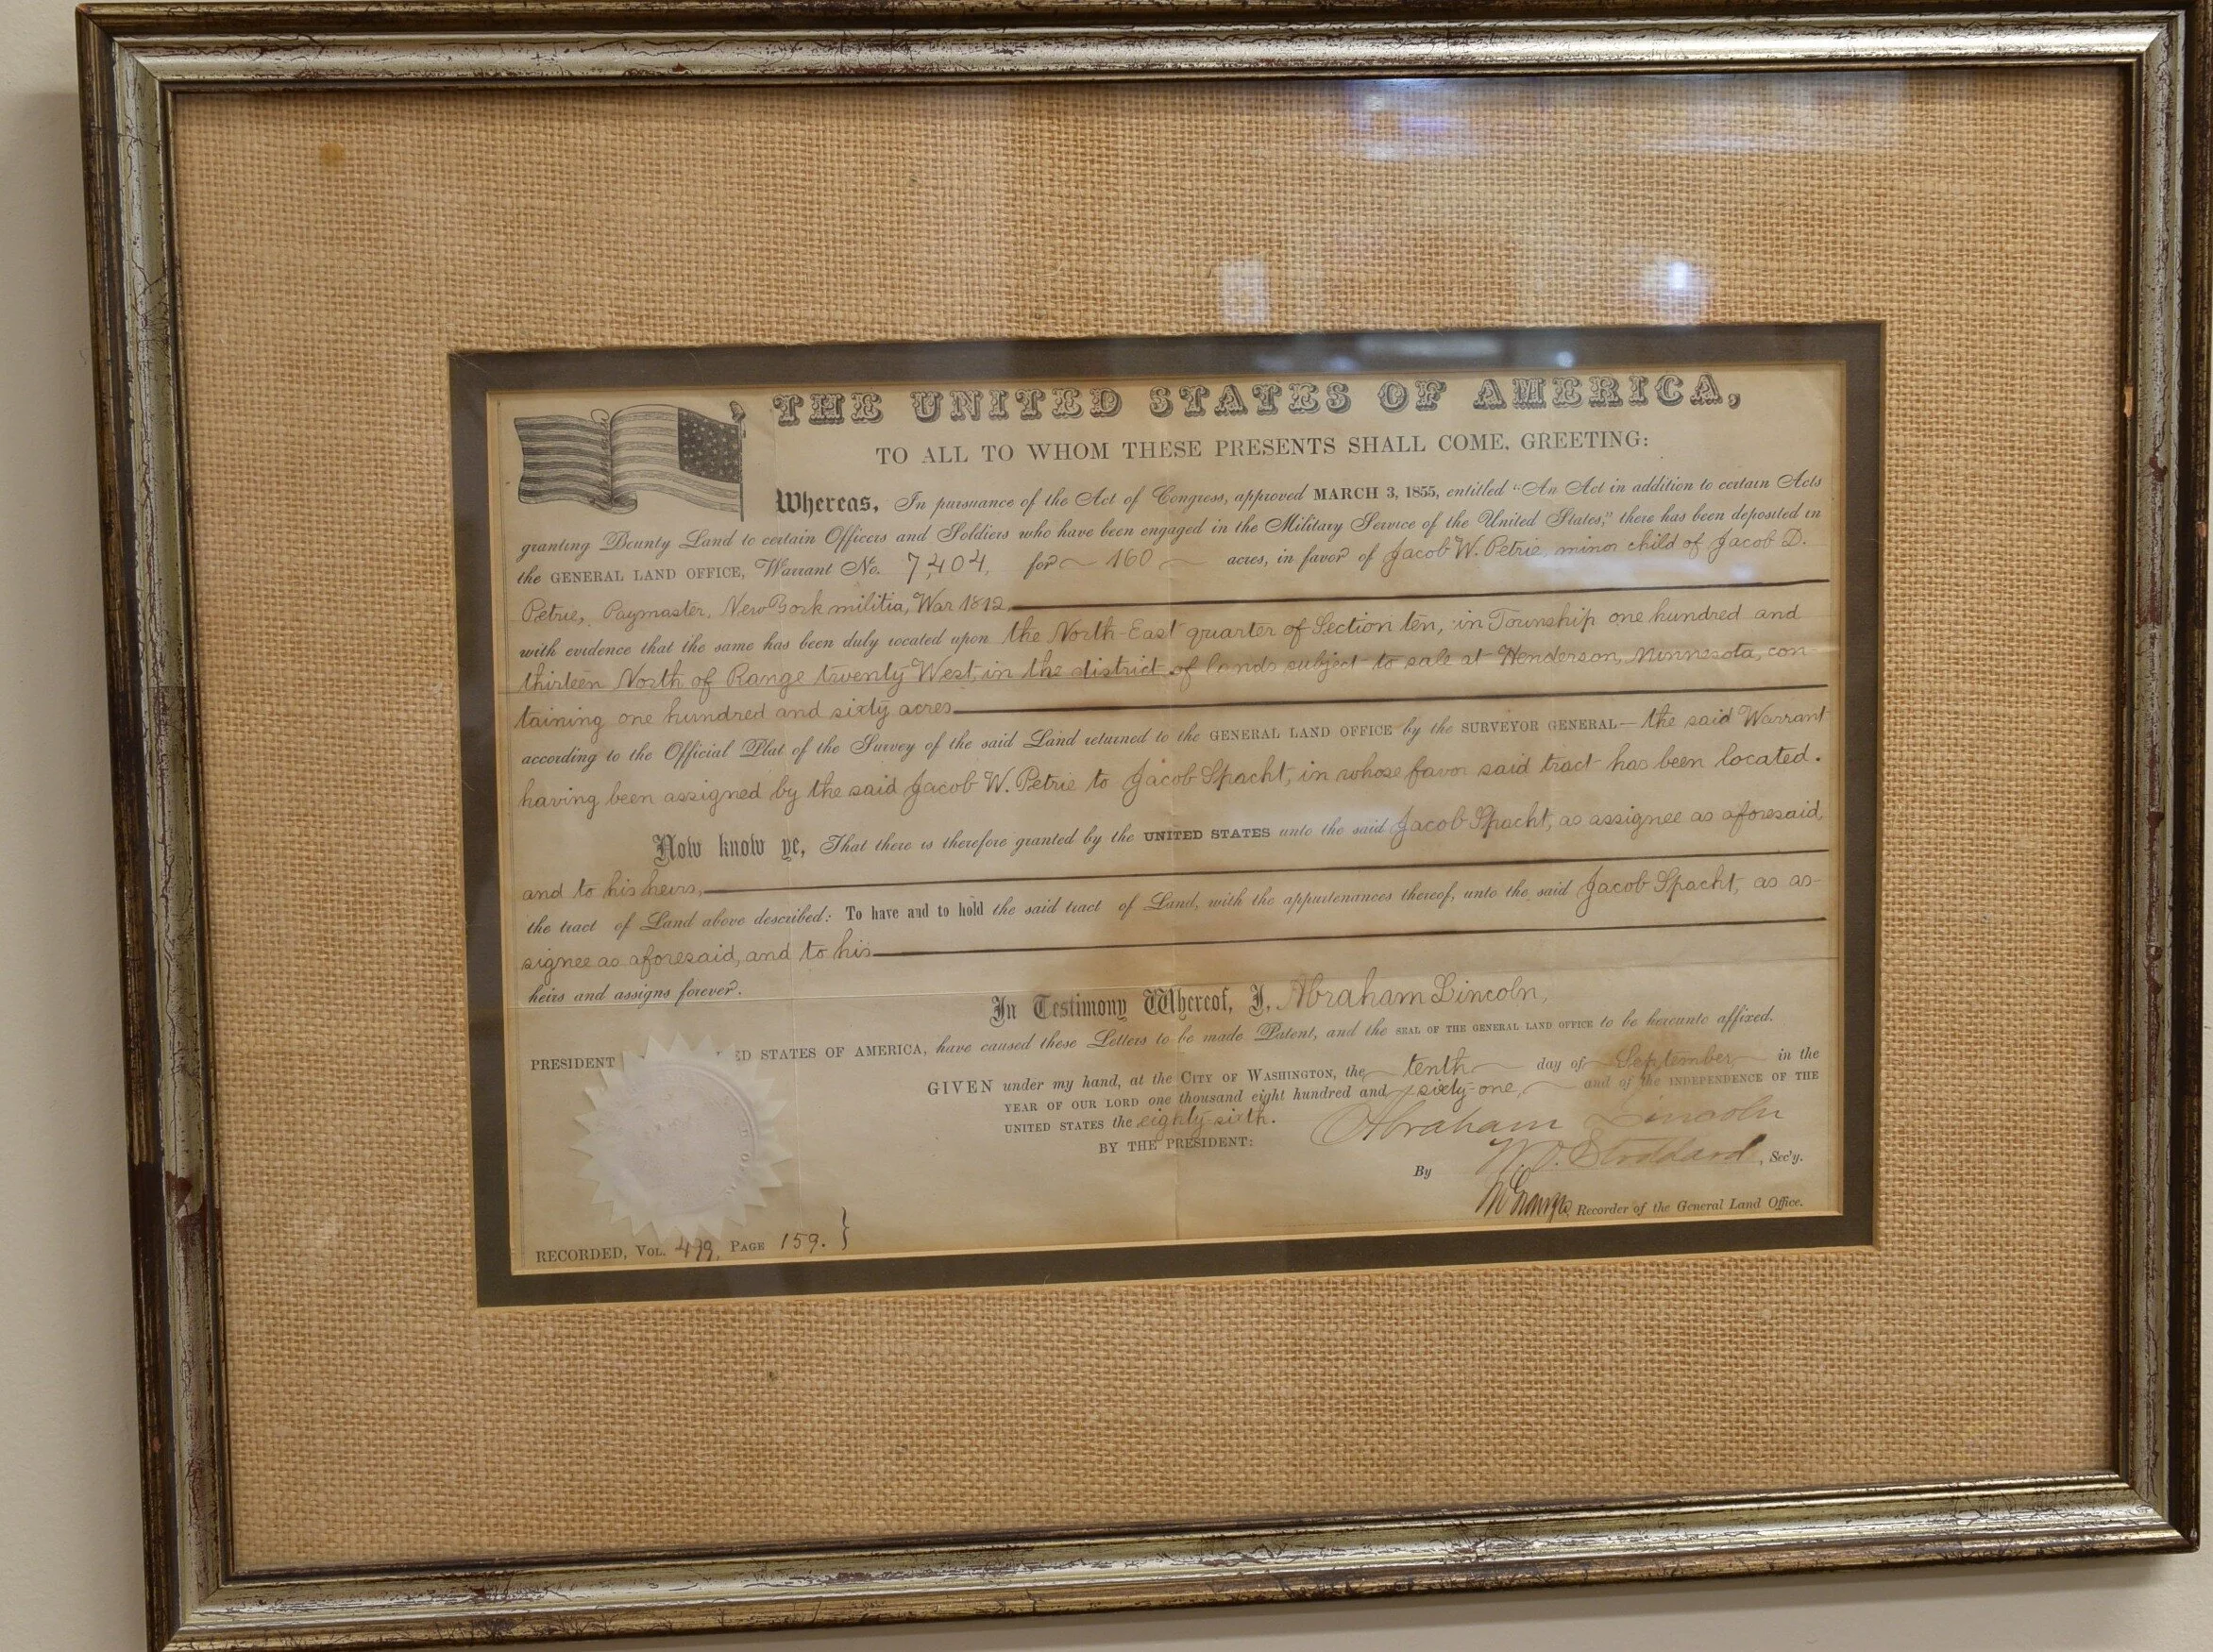 THE UNITED STATES OF AMERICA,
TO ALL TO WHOM THESE PRESENTS SHALL COME, GREETING:
Whereas, In pursuance of the Act of Congress, approved MARCH 3, 1855, entitled "An Act in addition to certain Acts
granting Bounty Land to certain Officers and Soldiers who have been engaged in the Military Service of the United States," there has been deposited in
the GENERAL LAND OFFICE, Warrant No. 7,404, for 160 acres, in favor of Jacob W. Petrie, minor child of Jacob D.
Petrie, Paymaster, New York militia, War 1812
with evidence that the same has been duly located upon the North-East quarter of Section ten, in Township one hundred and
thirteen North of Range twenty West, in the district of lands subject to sale at Henderson, Minnesota, con
taining one hundred and sixty acres
according to the Official Plat of the Survey of the said Land returned to the GENERAL LAND OFFICE by the SURVEYOR GENERAL— the said Warrant
having been assigned by the said Jacob W. Petrie to Jacob Spacht, in whose favor said tract has been located.
Now know ye, That there is therefore granted by the UNITED STATES unto the said Jacob Spacht, as assignee as aforesaid,
and to his heirs,
the tract of Land above described: To have and to hold the said tract of Land, with the appurtenances thereof, unto the said Jacob Spacht, as as-
signee as aforesaid, and to his
heirs and assigns forever.
In Testimony Whereof, I, Abraham Lincoln,
PRESIDENT ED STATES OF AMERICA, have caused these Letters to be made Patent, and the SEAL OF THE GENERAL LAND OFFICE to be hereunto affixed.
GIVEN under my hand, at the CITY OF WASHINGTON, the tenth day of September in the
YEAR OF OUR LORD one thousand eight hundred and sixty-one, and of the INDEPENDENCE OF THE
UNITED STATES the eighty-sixth.
BY THE PRESIDENT: Abraham Lincoln
By W. O. Stoddard, Sec'y.
Recorder of the General Land Office.
RECORDED, VOL. 479, PAGE 159.